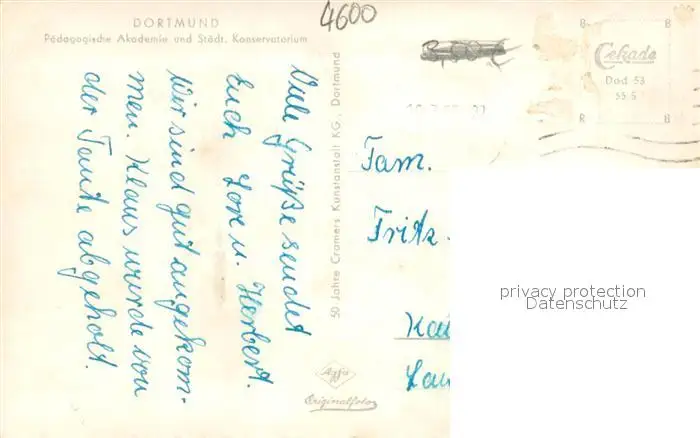 DORTMUND
Pädagogische Akademie und Städt. Konservatorium
4600
Viele Grüße sendet
Euch Lore u. Herbert.
Wir sind gut angekom-
men. Klaus wurde von
der Tante abgeholt.
50 Jahre Cramers Kunstanstalt KG., Dortmund
Agfa
Originalfoto
B B
Cekade
Dod 53
55 S
R B
Fam.
Fritz
privacy protection
Datenschutz